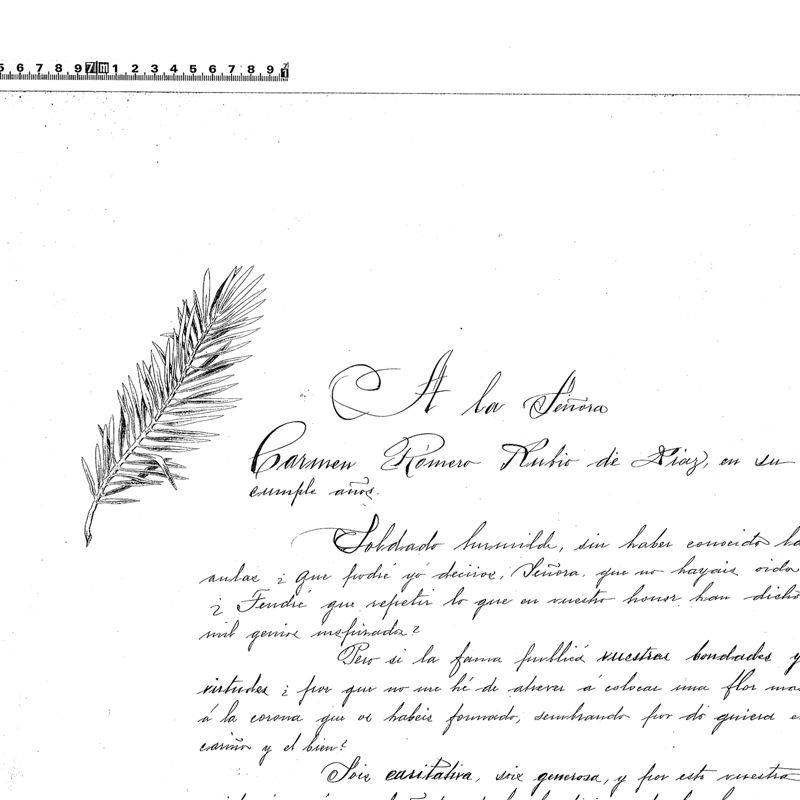 5 6 7 8 9 7 m 1 2 3 4 5 6 7 8 9
A la Señora
Carmen Romero Rubio de Diaz, en su
cumple años.
Soldado humilde, sin haber conocido
aulas ¿que podré yó deciros, Señora, que no hayais oido
¿Tendré que repetir lo que en vuestro honor han dicho
mil genios inspirados?
Pero si la fama publicá vuestras bondades y
virtudes ¿por que no me hé de atrever á colocar una flor mas
á la corona que os habeis formado, sembrando por do quiera
cariño y el bien?
Sois caritativa, sois generosa, y por esto vuestra